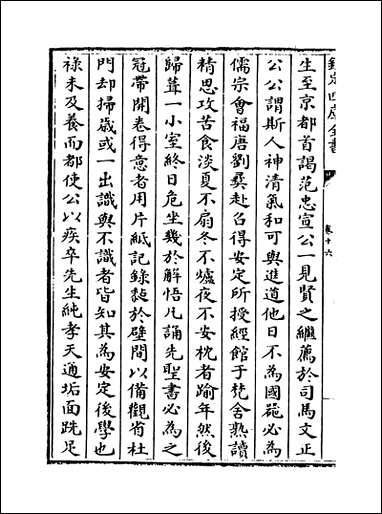 欽定四庫全書
卷十六
生至京都首謁范忠宣公一見賢之繼薦於司馬文正
公公謂斯人神清氣和可與進道他日不為國器必為
儒宗會福唐劉彝赴召得安定所授經館于梵舍熟讀
精思攻苦食淡夏不扇冬不爐夜不安枕者踰年然後
歸葺一小室終日危坐幾於解悟凡誦先聖書必為之
冠帶開卷得意者用片紙記錄黏於壁間以備觀省杜
門却掃歲或一出識與不識者皆知其為安定後學也
祿未及養而都使公以疾卒先生純孝天通垢面跣足